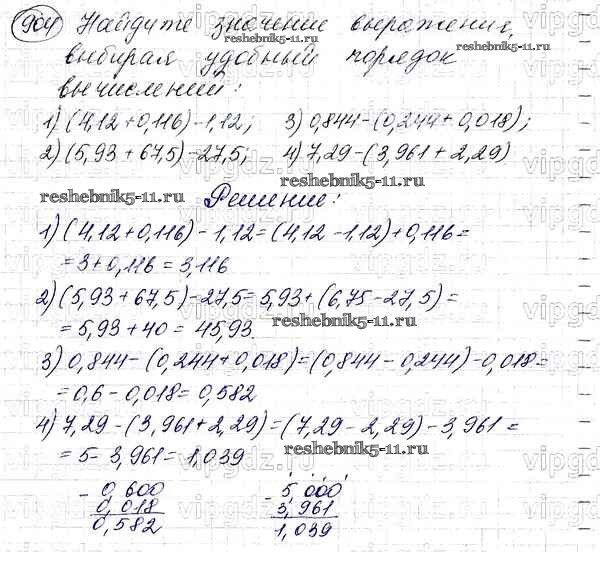 904 Найдите значение выражения,
выбирая удобный порядок
вычислений:
1) (4,12+0,116)-1,12; 3) 0,844-(0,244+0,018);
2) (5,93+67,5)-27,5; 4) 7,29-(3,961+2,29)
Решение:
1) (4,12+0,116)-1,12=(4,12-1,12)+0,116=
=3+0,116=3,116
2) (5,93+67,5)-27,5=5,93+(6,75-27,5)=
=5,93+40=45,93.
3) 0,844-(0,244+0,018)=(0,844-0,244)-0,018=
=0,6-0,018=0,582
4) 7,29-(3,961+2,29)=(7,29-2,29)-3,961=
=5-3,961=1,039
- 0,600 - 5,000
0,018 3,961
0,582 1,039
reshebnik5-11.ru
reshebnik5-11.ru
reshebnik5-11.ru
reshebnik5-11.ru
reshebnik5-11.ru
vipgdz.ru